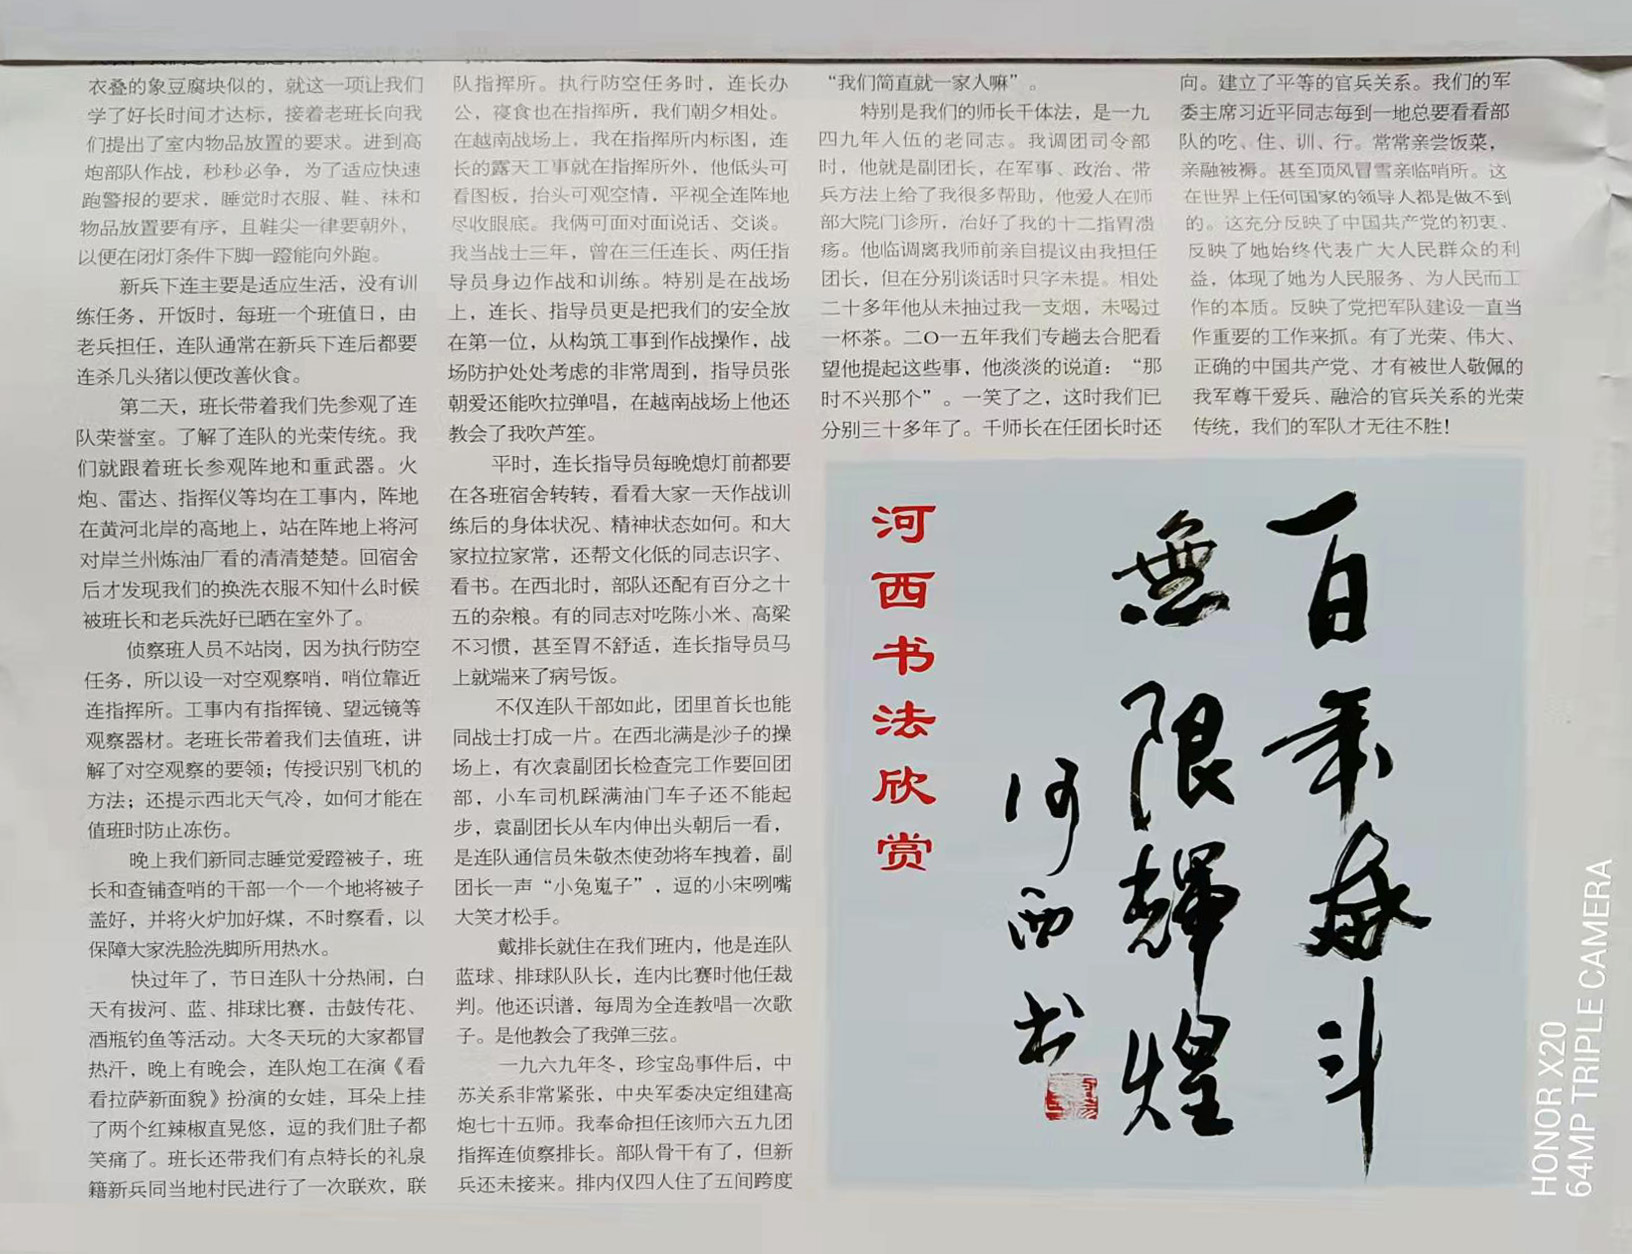 衣叠的象豆腐块似的，就这一项让我们
学了好长时间才达标，接着老班长向我
们提出了室内物品放置的要求。进到高
炮部队作战，秒秒必争，为了适应快速
跑警报的要求，睡觉时衣服、鞋、袜和
物品放置要有序，且鞋尖一律要朝外，
以便在闭灯条件下脚一蹬能向外跑。
新兵下连主要是适应生活，没有训
练任务，开饭时，每班一个班值日，由
老兵担任，连队通常在新兵下连后都要
连杀几头猪以便改善伙食。
第二天，班长带着我们先参观了连
队荣誉室。了解了连队的光荣传统。我
们就跟着班长参观阵地和重武器。火
炮、雷达、指挥仪等均在工事内，阵地
在黄河北岸的高地上，站在阵地上将河
对岸兰州炼油厂看的清清楚楚。回宿舍
后才发现我们的换洗衣服不知什么时候
被班长和老兵洗好已晒在室外了。
侦察班人员不站岗，因为执行防空
任务，所以设一对空观察哨，哨位靠近
连指挥所。工事内有指挥镜、望远镜等
观察器材。老班长带着我们去值班，讲
解了对空观察的要领；传授识别飞机的
方法；还提示西北天气冷，如何才能在
值班时防止冻伤。
晚上我们新同志睡觉爱蹬被子，班
长和查铺查哨的干部一个一个地将被子
盖好，并将火炉加好煤，不时察看，以
保障大家洗脸洗脚所用热水。
快过年了，节日连队十分热闹，白
天有拔河、蓝、排球比赛，击鼓传花、
酒瓶钓鱼等活动。大冬天玩的大家都冒
热汗，晚上有晚会，连队炮工在演《看
看拉萨新面貌》扮演的女娃，耳朵上挂
了两个红辣椒直晃悠，逗的我们肚子都
笑痛了。班长还带我们有点特长的礼泉
籍新兵同当地村民进行了一次联欢，联
队指挥所。执行防空任务时，连长办
公，寝食也在指挥所，我们朝夕相处。
在越南战场上，我在指挥所内标图，连
长的露天工事就在指挥所外，他低头可
看图板，抬头可观空情，平视全连阵地
尽收眼底。我俩可面对面说话、交谈。
我当战士三年，曾在三任连长、两任指
导员身边作战和训练。特别是在战场
上，连长、指导员更是把我们的安全放
在第一位，从构筑工事到作战操作，战
场防护处处考虑的非常周到，指导员张
朝爱还能吹拉弹唱，在越南战场上他还
教会了我吹芦笙。
平时，连长指导员每晚熄灯前都要
在各班宿舍转转，看看大家一天作战训
练后的身体状况、精神状态如何。和大
家拉拉家常，还帮文化低的同志识字、
看书。在西北时，部队还配有百分之十
五的杂粮。有的同志对吃陈小米、高梁
不习惯，甚至胃不舒适，连长指导员马
上就端来了病号饭。
不仅连队干部如此，团里首长也能
同战士打成一片。在西北满是沙子的操
场上，有次袁副团长检查完工作要回团
部，小车司机踩满油门车子还不能起
步，袁副团长从车内伸出头朝后一看，
是连队通信员朱敬杰使劲将车拽着，副
团长一声“小兔嵬子”，逗的小宋咧嘴
大笑才松手。
戴排长就住在我们班内，他是连队
蓝球、排球队队长，连内比赛时他任裁
判。他还识谱，每周为全连教唱一次歌
子。是他教会了我弹三弦。
一九六九年冬，珍宝岛事件后，中
苏关系非常紧张，中央军委决定组建高
炮七十五师。我奉命担任该师六五九团
指挥连侦察排长。部队骨干有了，但新
兵还未接来。排内仅四人住了五间跨度
“我们简直就一家人嘛”。
特别是我们的师长千体法，是一九
四九年入伍的老同志。我调团司令部
时，他就是副团长，在军事、政治、带
兵方法上给了我很多帮助，他爱人在师
部大院门诊所，冶好了我的十二指胃溃
疡。他临调离我师前亲自提议由我担任
团长，但在分别谈话时只字未提。相处
二十多年他从未抽过我一支烟，未喝过
一杯茶。二O一五年我们专趟去合肥看
望他提起这些事，他淡淡的说道：“那
时不兴那个”。一笑了之，这时我们已
分别三十多年了。千师长在任团长时还
向。建立了平等的官兵关系。我们的军
委主席习近平同志每到一地总要看看部
队的吃、住、训、行。常常亲尝饭菜，
亲融被褥。甚至顶风冒雪亲临哨所。这
在世界上任何国家的领导人都是做不到
的。这充分反映了中国共产党的初衷、
反映了她始终代表广大人民群众的利
益，体现了她为人民服务、为人民而工
作的本质。反映了党把军队建设一直当
作重要的工作来抓。有了光荣、伟大、
正确的中国共产党、才有被世人敬佩的
我军尊干爱兵、融洽的官兵关系的光荣
传统，我们的军队才无往不胜！
河西书法欣赏
百年奋斗
無限輝煌
河西书
HONOR X20
64MP TRIPLE CAMERA